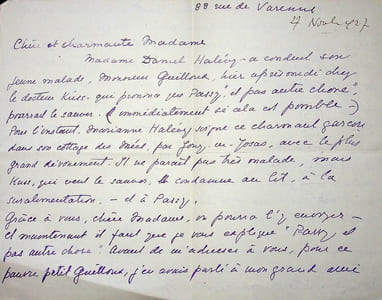 88 rue de Varenne
27 Novbre 27
Chère et charmante Madame
Madame Daniel Halévy a conduit son
jeune malade, Monsieur Guilloux, hier après midi chez
le docteur Kuss, qui prononça que "Passy, et pas autre chose",
pourrait le sauver. (immédiatement si cela est possible –)
Pour l'instant, Marianne Halévy soigne ce charmant garçon
dans son cottage des Metz, par Jouy-en-Josas, avec le plus
grand dévouement. Il ne paraît pas très malade, mais
Kuss, qui veut le sauver, le condamne au lit, à la
suralimentation, – et à Passy.
Grâce à vous, chère Madame, on pourra l'y envoyer –
Et maintenant il faut que je vous explique "Passy et
pas autre chose". Avant de m'adresser à vous, pour ce
pauvre petit Guilloux, j'en avais parlé à mon grand ami